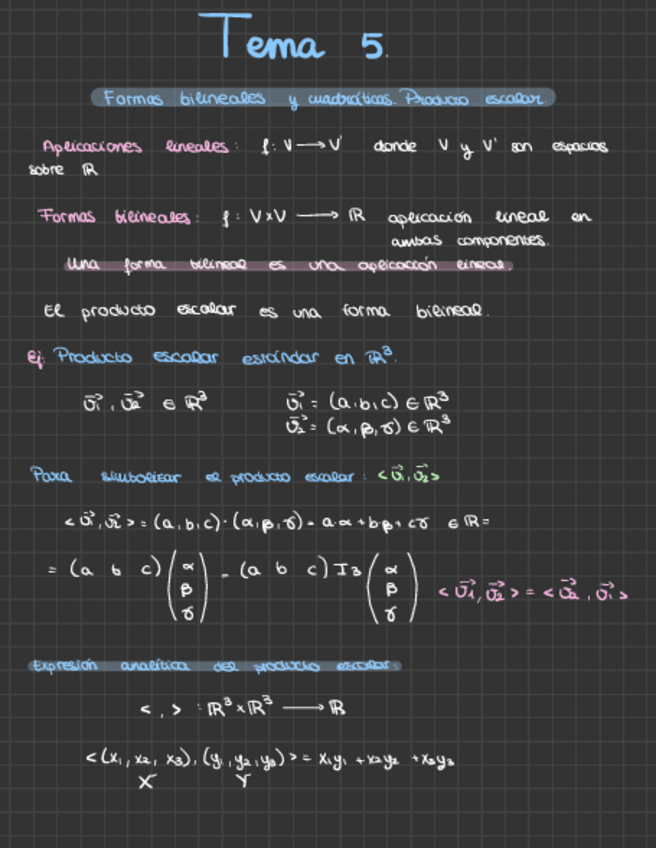 Tema 5.
Formas bilineales y cuadráticas. Producto escalar.
Aplicaciones lineales: f: V → V' donde V y V' son espacios
sobre ℝ
Formas bilineales: f: V×V → ℝ aplicación lineal en
ambas componentes.
Una forma bilineal es una aplicación lineal.
El producto escalar es una forma bilineal.
Ej: Producto escalar estándar en ℝ³.
v⃗₁, v⃗₂ ∈ ℝ³ v⃗₁ = (a,b,c) ∈ ℝ³
v⃗₂ = (α,β,γ) ∈ ℝ³
Para simbolizar el producto escalar: <v⃗₁,v⃗₂>
<v⃗₁,v⃗₂> = (a,b,c)·(α,β,γ) = a·α + b·β + cγ ∈ ℝ =
= (a b c) (α β γ) = (a b c) I₃ (α β γ) <v⃗₁,v⃗₂> = <v⃗₂,v⃗₁>
Expresión analítica del producto escalar:
< , > : ℝ³×ℝ³ → ℝ
<(x₁, x₂, x₃), (y₁, y₂, y₃)> = x₁y₁ + x₂y₂ + x₃y₃
X Y